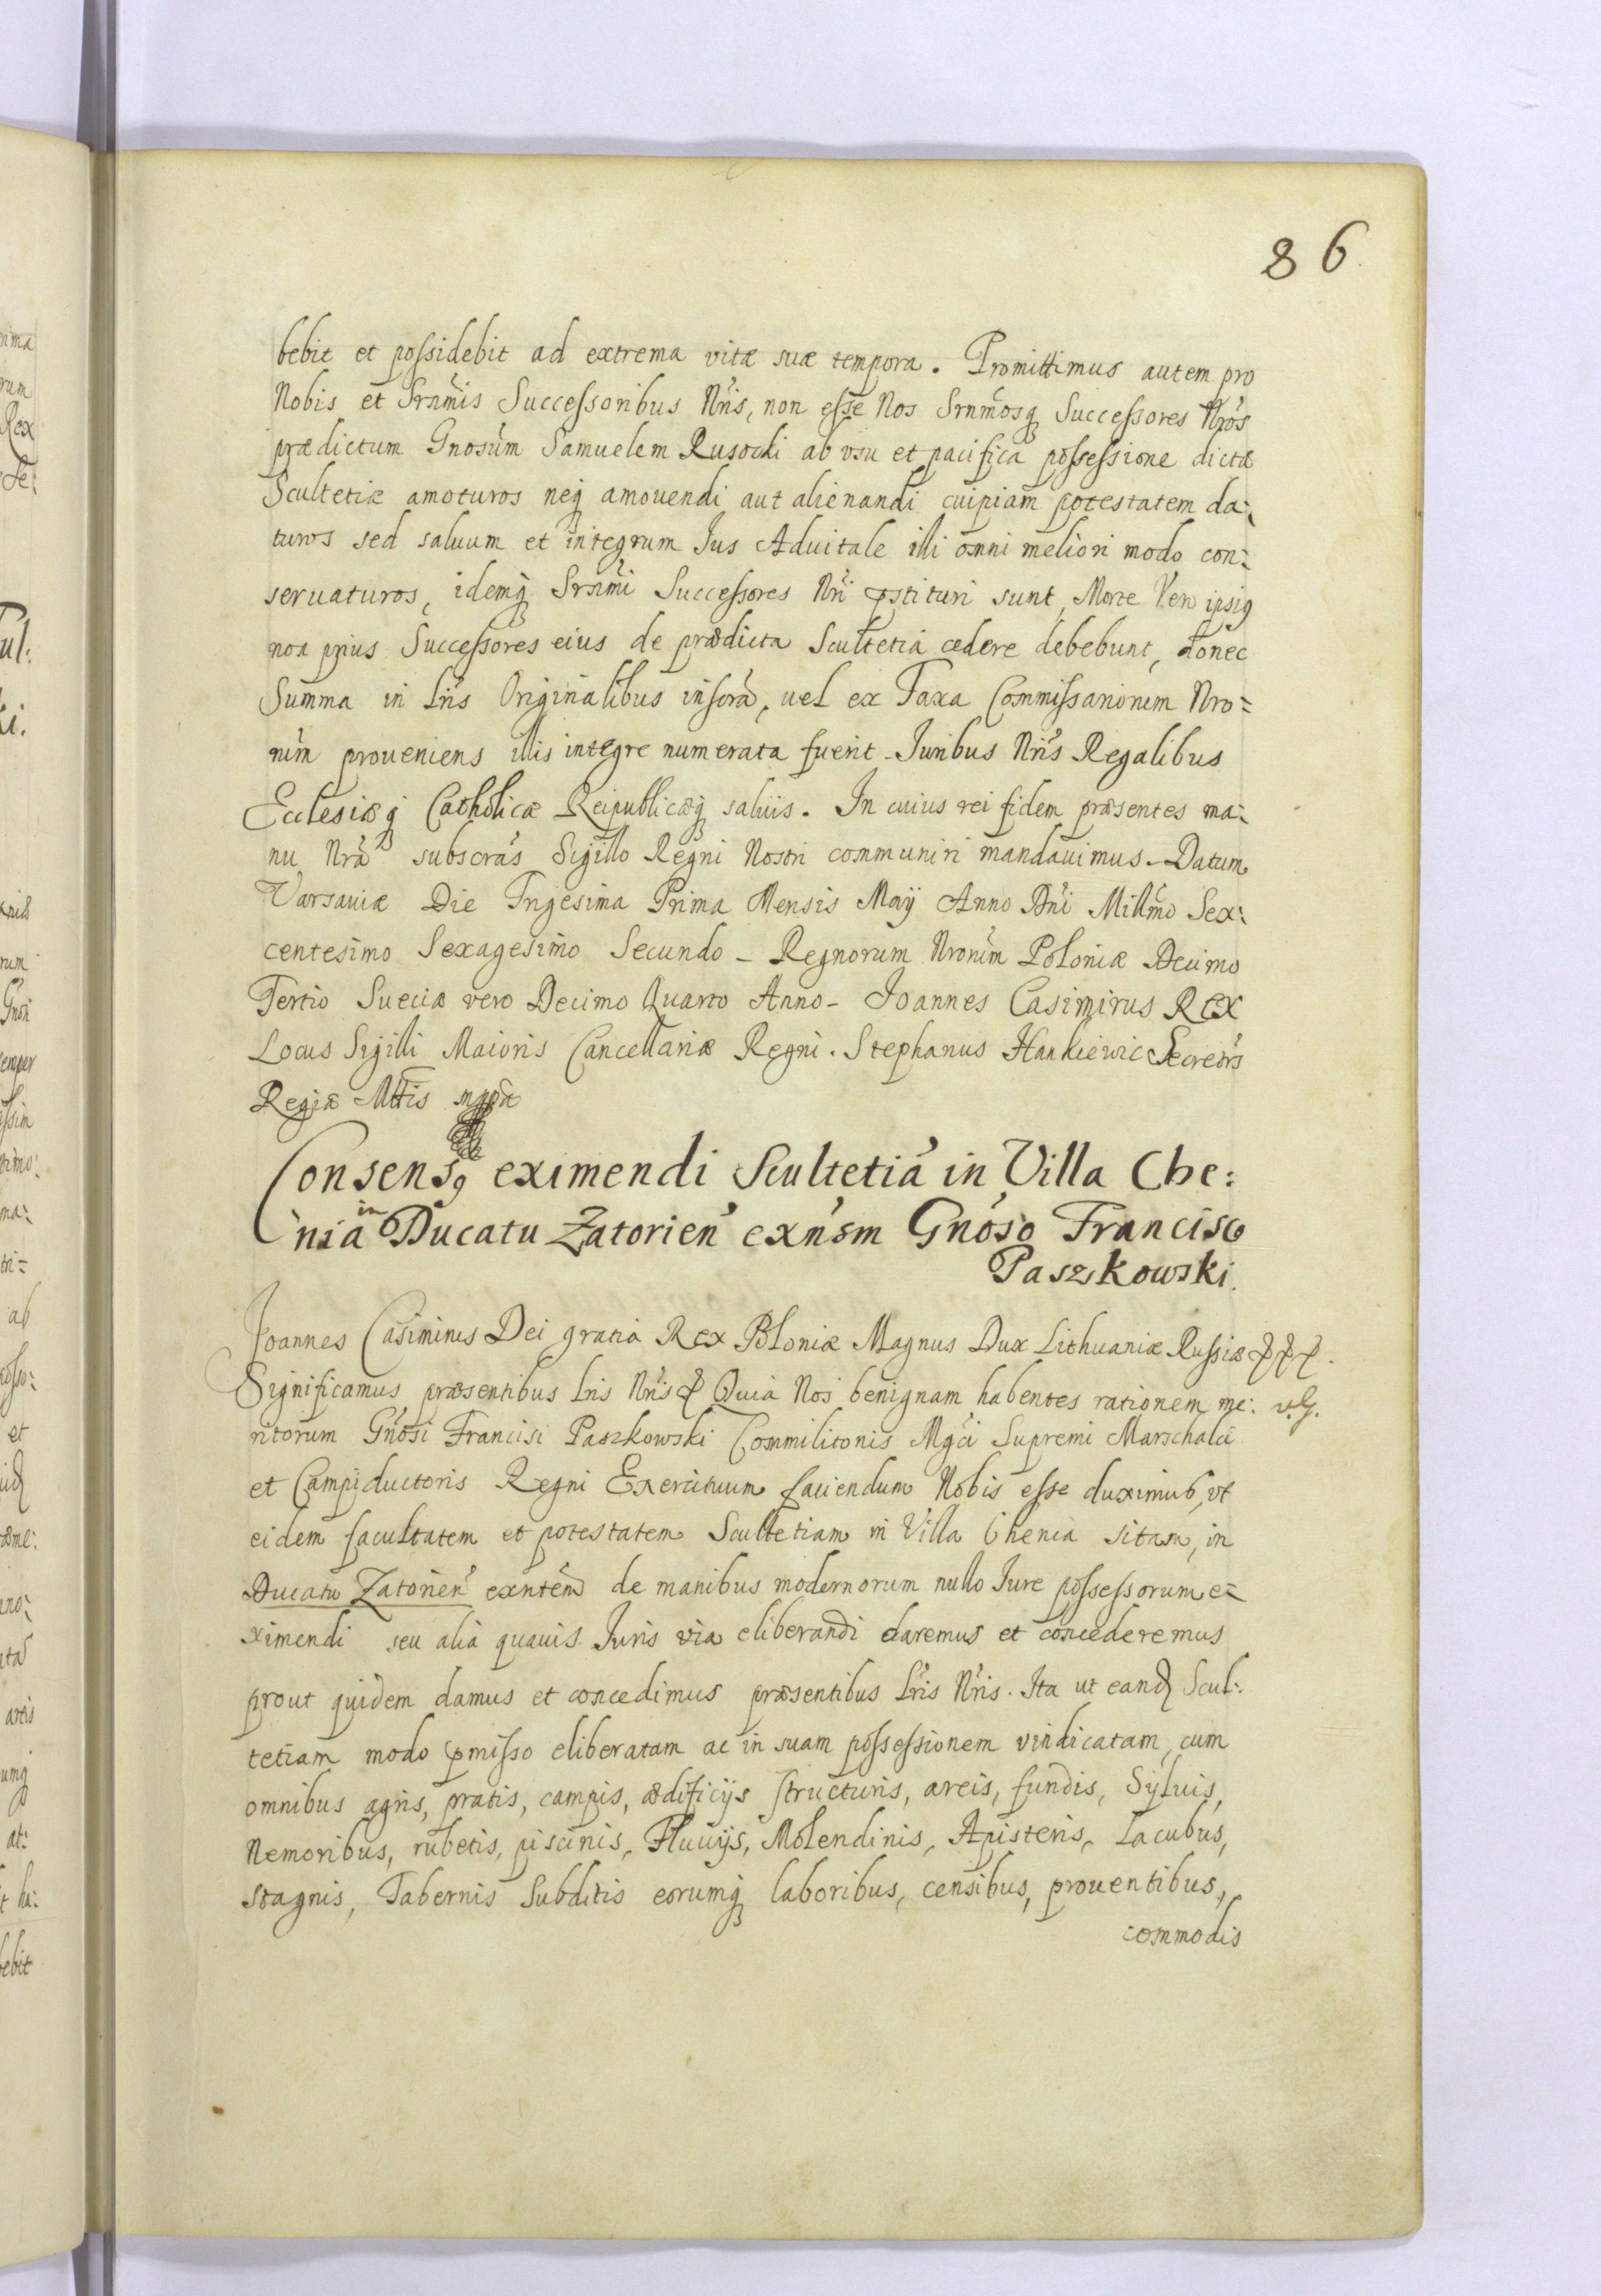 86
bebit et possidebit ad extrema vitæ suæ tempora. Promittimus autem pro
Nobis et Srñmis Successoribus Nris, non esse Nos Srnmosq Successores Nros
prædictum Gnosum Samuelem Rusocki ab vsu et pacifica possessione dictæ
Scultetiæ amoturos neq amouendi aut alienandi cuipiam potestatem da:
turos sed saluum et integrum Jus Aduitale illi omni meliori modo con:
seruaturos, idemq Srnmi Successores Nri pstituri sunt, Morte Vero ipsig
non prius Successores eius de prædicta Scultetia cedere debebunt, donec
Summa in Lris Originalibus inscra, uel ex Taxa Commissariorum Nro=
rum proueniens illis integre numerata fuerit. Juribus Nris Regalibus
Ecclesiæq Catholicæ Reipublicæq saluis. In cuius rei fidem præsentes ma:
nu Nra subscras Sigillo Regni Nostri communiri mandauimus. Datum
Varsauiæ Die Trigesima Prima Mensis Maij Anno Dni Millmo Sex:
centesimo Sexagesimo Secundo - Regnorum Nrorum Poloniæ Decimo
Tertio Sueciæ vero Decimo Quarto Anno - Joannes Casimirus REX
Locus Sigilli Maioris Cancellariæ Regni. Stephanus Hankiewic Secretrs
Regiæ Mttis mppa
Consensq eximendi Scultetia in Villa Che:
nia in Ducatu Zatorien exnsm Gnoso Francisco
Paszkowski.
Joannes Casimirus Dei gratia Rex Poloniæ Magnus Dux Lithuaniæ Russiæ & & &.
Significamus præsentibus Lris Nris & Quia Nos benignam habentes rationem me: v.g.
ritorum Gnosi Francisi Paszkowski Commilitonis Mgci Supremi Marschalci
et Campiductoris Regni Exercituum faciendum Nobis esse duximus, vt
eidem facultatem et potestatem Scultetiam in Villa Chenia sitam, in
Ducatu Zatorien exntem de manibus modernorum nullo Jure possessorum e=
ximendi seu alia quauis Juris via eliberandi daremus et concederemus
prout quidem damus et concedimus præsentibus Lris Nris. Ita ut eand Scul:
tetiam modo pmisso eliberatam ac in suam possessionem vindicatam, cum
omnibus agris, pratis, campis, ædificijs structuris, areis, fundis, Syluis,
Nemoribus, rubetis, piscinis, Fluuijs, Molendinis, Apisteris, Lacubus,
stagnis, Tabernis Subditis eorumq laboribus, censibus, prouentibus,
commodis